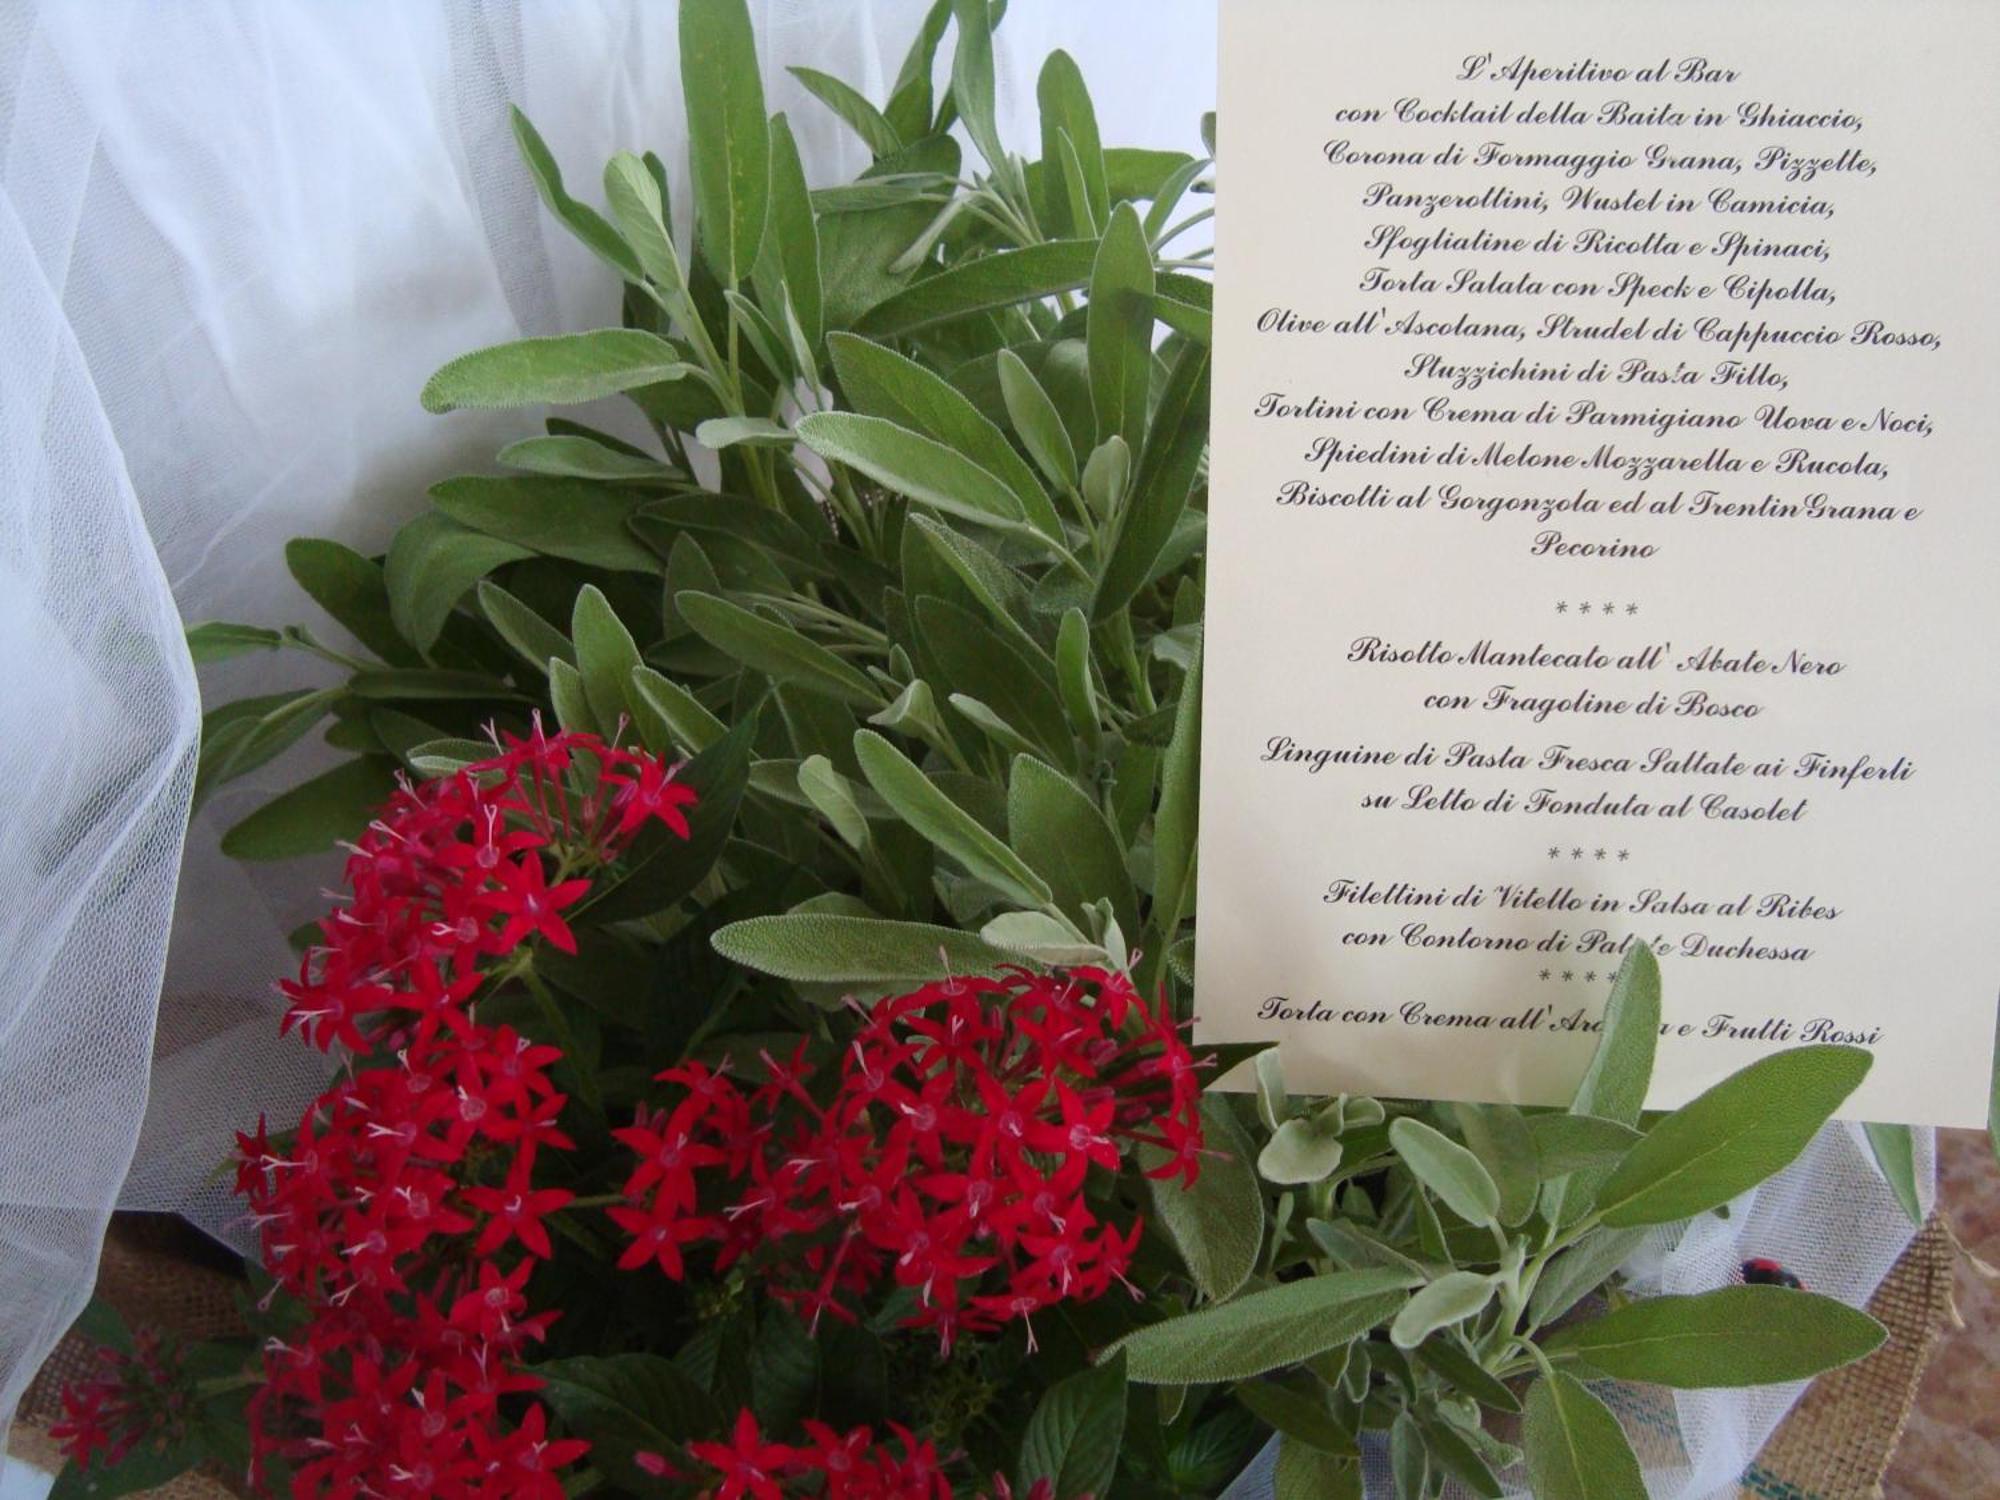 L'Aperitivo al Bar
con Cocktail della Baita in Ghiaccio,
Corona di Formaggio Grana, Pizzette,
Panzerottini, Wustel in Camicia,
Sfogliatine di Ricotta e Spinaci,
Torta Salata con Speck e Cipolla,
Olive all'Ascolana, Strudel di Cappuccio Rosso,
Stuzzichini di Pasta Fillo,
Tortini con Crema di Parmigiano Uova e Noci,
Spiedini di Melone Mozzarella e Rucola,
Biscotti al Gorgonzola ed al TrentinGrana e
Pecorino
* * * *
Risotto Mantecato all' Abate Nero
con Fragoline di Bosco
Linguine di Pasta Fresca Saltate ai Finferli
su Letto di Fonduta al Casolet
* * * *
Filettini di Vitello in Salsa al Ribes
con Contorno di Duchessa
* * * *
Torta con Crema e Frutti Rossi